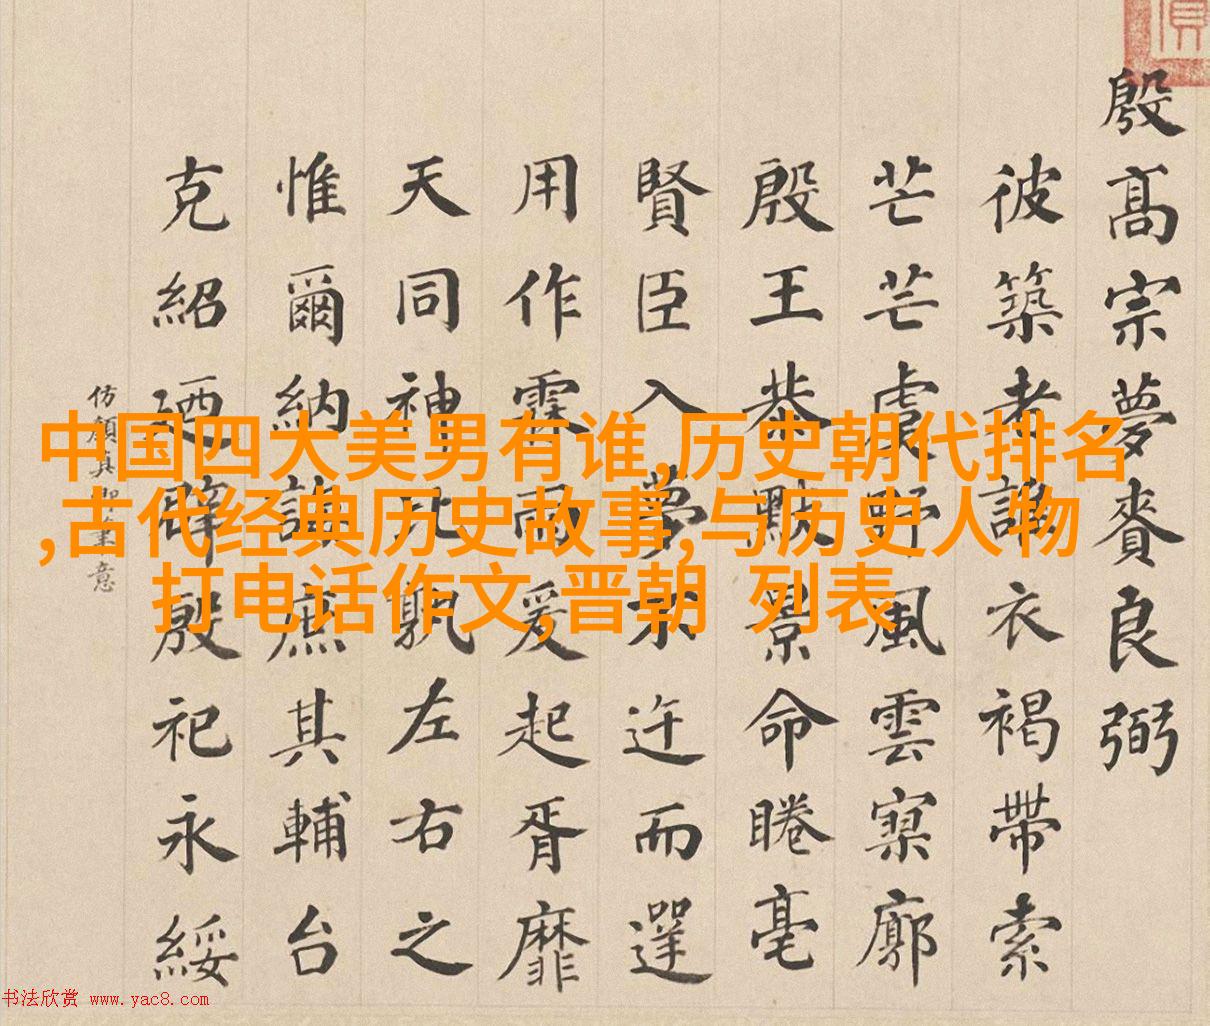 殷髙宗夢賚良弼
彼築者誰衣褐帶索
芒芒虞野風雲寥廓
殷王恭默景命睠亳
賢臣入夢求迕而
用作霖雨爰起胥靡
天同神比孰左右之
惟爾納誨庶其輔台
克紹廼辟殷祀永綏
仿顏真卿筆意
中国四大美男有谁,历史朝代排名
,古代经典历史故事,与历史人物
打电话作文,晋朝 列表
书法欣赏 www.yac8.com